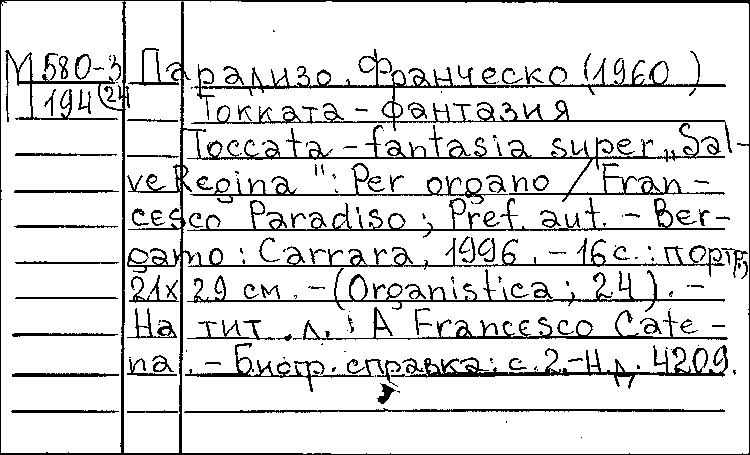 М 580-3 Парадизо, Франческо (1960 )
П 194 (24) Токката-фантазия
Toccata-fantasia super „Sal-
ve Regina": Per organo / Fran-
cesco Paradiso; Pref. aut. - Ber-
gamo: Carrara, 1996. - 16 с.: портр.;
21x29 см. - (Organistica; 24). -
На тит. л.: A Francesco Cate-
na. - Биогр. справка: с. 2. - Н. д. 4209.